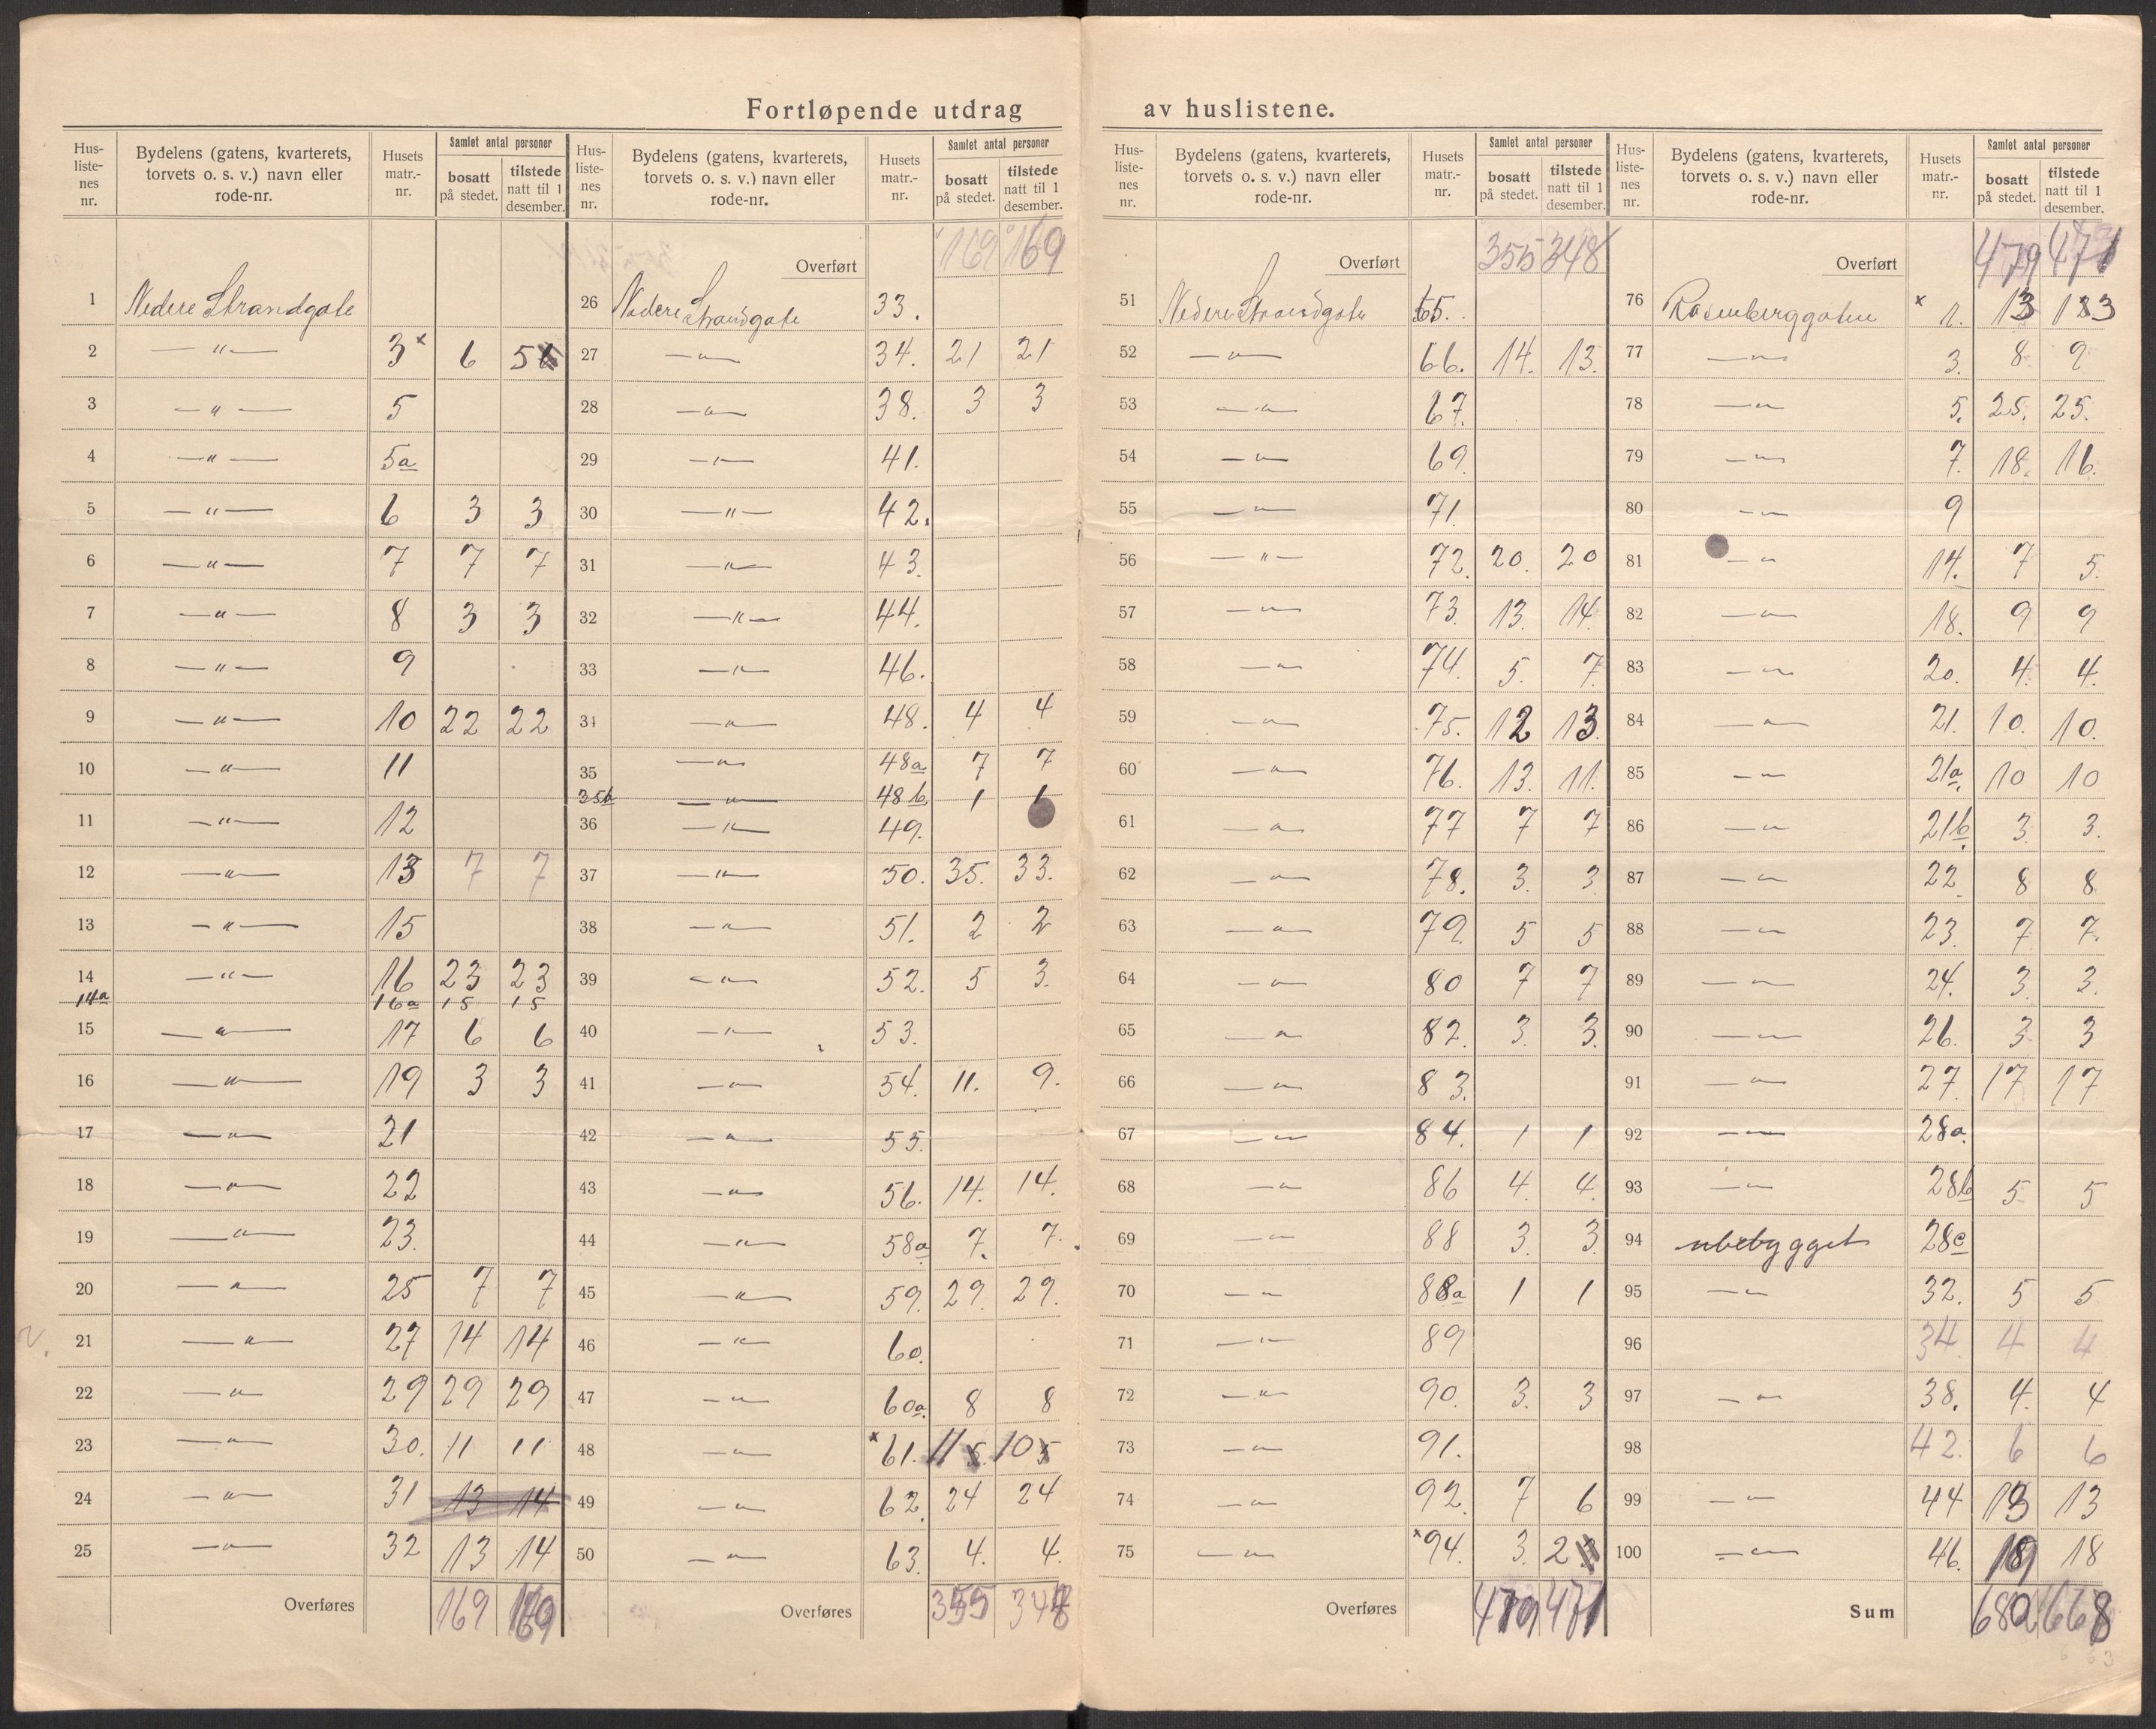 Fortløpende utdrag av huslistene.
Hus-liste-nes nr. | Bydelens (gatens, kvarterets, torvets o. s. v.) navn eller rode-nr. | Husets matr.-nr. | Samlet antal personer | bosatt på stedet. | tilstede natt til 1 desember.
1 Nedere Strandgate
2 —"— 3 x 6 5
3 —"— 5
4 —"— 5a
5 —"— 6 3 3
6 —"— 7 7 7
7 —"— 8 3 3
8 —"— 9
9 —"— 10 22 22
10 —"— 11
11 —"— 12
12 —"— 13 7 7
13 —"— 15
14 —"— 16 23 23
14a 16a 15 15
15 —"— 17 6 6
16 —"— 19 3 3
17 —"— 21
18 —"— 22
19 —"— 23.
20 —"— 25 7 7
21 —"— 27 14 14
22 —"— 29 29 29
23 —"— 30. 11 11
24 —"— 31 13 14
25 —"— 32 13 14
Overføres 169 169
Hus-liste-nes nr. | Bydelens (gatens, kvarterets, torvets o. s. v.) navn eller rode-nr. | Husets matr.-nr. | Samlet antal personer | bosatt på stedet. | tilstede natt til 1 desember.
Overført 169 169
26 Nedere Strandgate 33.
27 —"— 34. 21 21
28 —"— 38. 3 3
29 —"— 41.
30 —"— 42.
31 —"— 43.
32 —"— 44.
33 —"— 46.
34 —"— 48. 4 4
35 —"— 48a 7 7
35b —"— 48b 1 1
36 —"— 49.
37 —"— 50. 35. 33.
38 —"— 51. 2 2
39 —"— 52. 5 3.
40 —"— 53.
41 —"— 54. 11. 9.
42 —"— 55.
43 —"— 56. 14. 14.
44 —"— 58a 7. 7.
45 —"— 59. 29. 29.
46 —"— 60.
47 —"— 60a. 8 8
48 —"— x 61. 11 5. 10 5
49 —"— 62. 24 24
50 —"— 63. 4. 4.
Overføres 355 348
Hus-liste-nes nr. | Bydelens (gatens, kvarterets, torvets o. s. v.) navn eller rode-nr. | Husets matr.-nr. | Samlet antal personer | bosatt på stedet. | tilstede natt til 1 desember.
Overført 355 348
51 Nedere Strandgate 65.
52 —"— 66. 14. 13.
53 —"— 67.
54 —"— 69.
55 —"— 71.
56 —"— 72. 20. 20
57 —"— 73. 13. 14.
58 —"— 74. 5. 7.
59 —"— 75. 12 13.
60 —"— 76. 13. 11.
61 —"— 77 7 7
62 —"— 78. 3. 3.
63 —"— 79. 5 5
64 —"— 80 7 7
65 —"— 82. 3. 3.
66 —"— 83.
67 —"— 84. 1 1
68 —"— 86 4. 4.
69 —"— 88 3. 3.
70 —"— 88a 1 1
71 —"— 89
72 —"— 90. 3. 3
73 —"— 91.
74 —"— 92. 7 6
75 —"— x 94. 3. 2
Overføres 479 471
Hus-liste-nes nr. | Bydelens (gatens, kvarterets, torvets o. s. v.) navn eller rode-nr. | Husets matr.-nr. | Samlet antal personer | bosatt på stedet. | tilstede natt til 1 desember.
Overført 479 471
76 Rosenberggaten x 1. 13 13
77 —"— 3. 8. 9
78 —"— 5. 25. 25.
79 —"— 7. 18. 16.
80 —"— 9
81 —"— 14. 7 5.
82 —"— 18. 9 9
83 —"— 20. 4. 4.
84 —"— 21. 10. 10.
85 —"— 21a. 10 10
86 —"— 21b. 3. 3.
87 —"— 22. 8 8.
88 —"— 23. 7. 7.
89 —"— 24. 3. 3.
90 —"— 26. 3. 3
91 —"— 27. 17 17
92 —"— 28a.
93 —"— 28b 5 5
94 ubebygget 28c
95 —"— 32. 5 5
96 34. 4 4
97 —"— 38. 4. 4
98 42. 6 6
99 —"— 44 13 13
100 —"— 46. 19 18
Sum 680 668